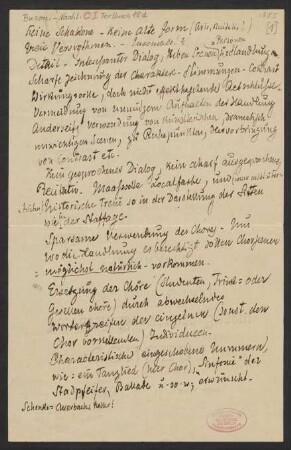 Busoni-Nachl. C I Textbuch
Keine Schablone – Keine alte Form (Arie, Duette!)
Freie Versrythmen.
Personen
Detail – Interessanter Dialog, leben[dige] Handlung
Scharfe Zeichnung der Charaktere – Stimmungen – Contrast
Wirkungsvolle, doch nicht Aktschlüsse
Vermeidung von unnützem Aufhalten der Handlung
Anderseits Verwendung von dramatisch
unwichtigen Scenen, zu Ruhepunkten, Hervorbringung
von Contrast etc.
Kein gesprochener Dialog, kein scharf ausgesprochenes
Recitativ. Maassvolle Localfarbe, und
historische Treue so in der Darstellung der Sitten
wie der Staffage.
Sparsame Verwendung des Chors. Nur
wo die Handlung es berechtigt sollen Chorscenen
möglichst natürlich – vorkommen.
Ersetzung der Chöre (Studenten, Trink= oder
Gesellen chöre) durch abwechselndes
der einzelnen (sonst den
Chor vorstellenden) Individuen.
Charakteristische eingeschobene Nummern,
wie: ein Tanzlied (hier Chor), Sinfonie der
Stadtpfeifer, Ballade u. s. w. erwünscht.
Schenke = Auerbachs Keller!